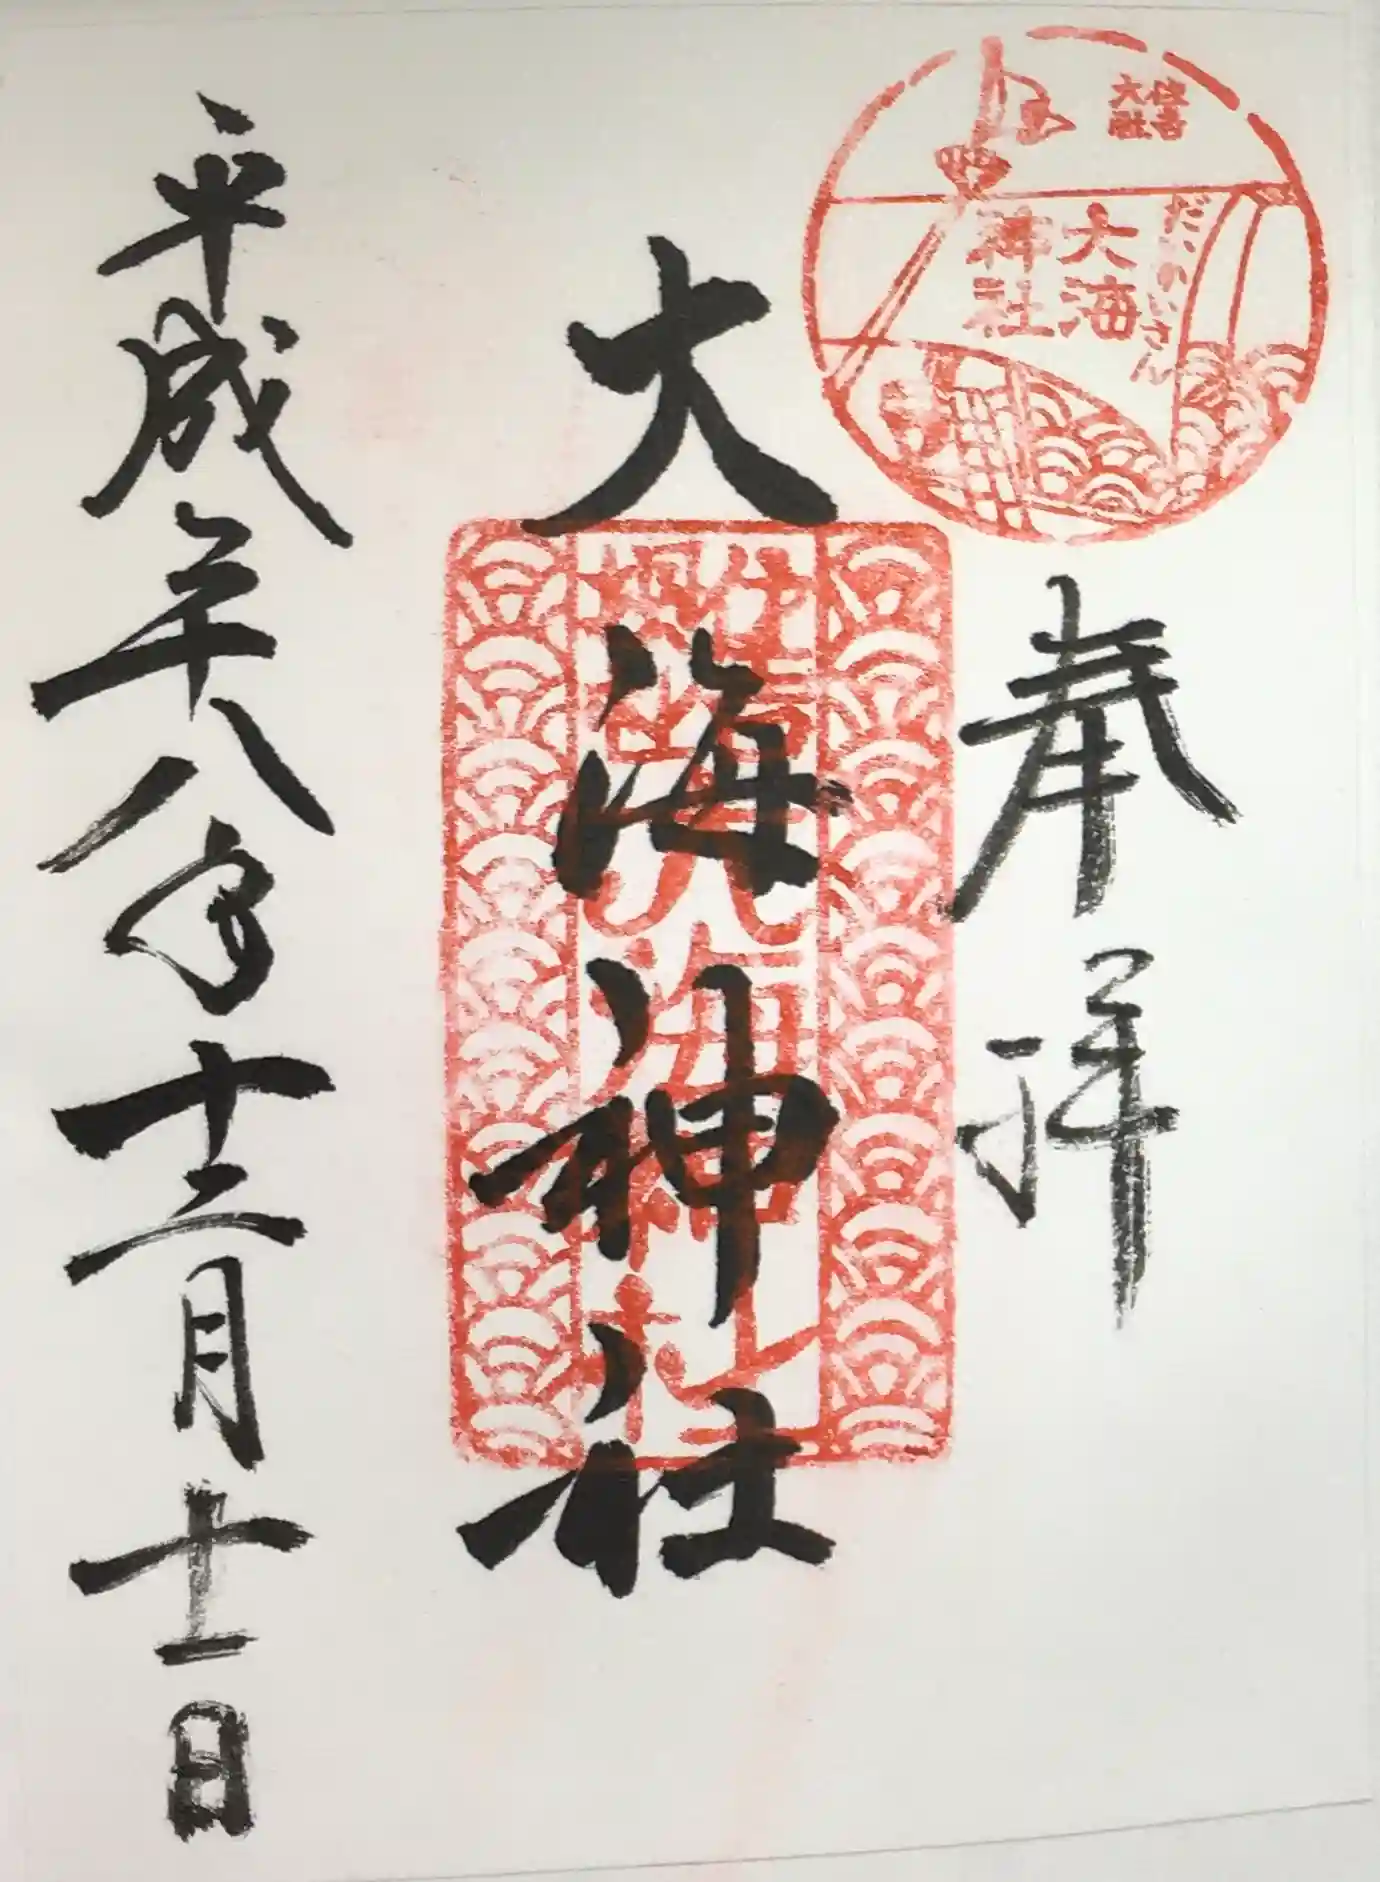 住吉
大社
だいかいさん
大海
神社
奉拝
大海神社
平成二十八年十二月十一日